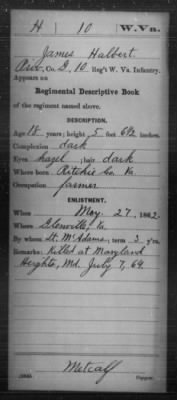 H 10 W.Va.
James Halbert
Pvt., Co. G, 10 Reg't W. Va. Infantry.
Appears on
Regimental Descriptive Book
of the regiment named above.
DESCRIPTION.
Age 18 years; height 5 feet 6½ inches.
Complexion dark
Eyes hazel; hair dark
Where born Ritchie Co. Va.
Occupation farmer
ENLISTMENT.
When May 27, 1862.
Where Glenville, Va
By whom Lt. McAdams, term 3 y'rs.
Remarks: Killed at Maryland
Heights, Md. July 7, 64.
Metcalf
Copyist.